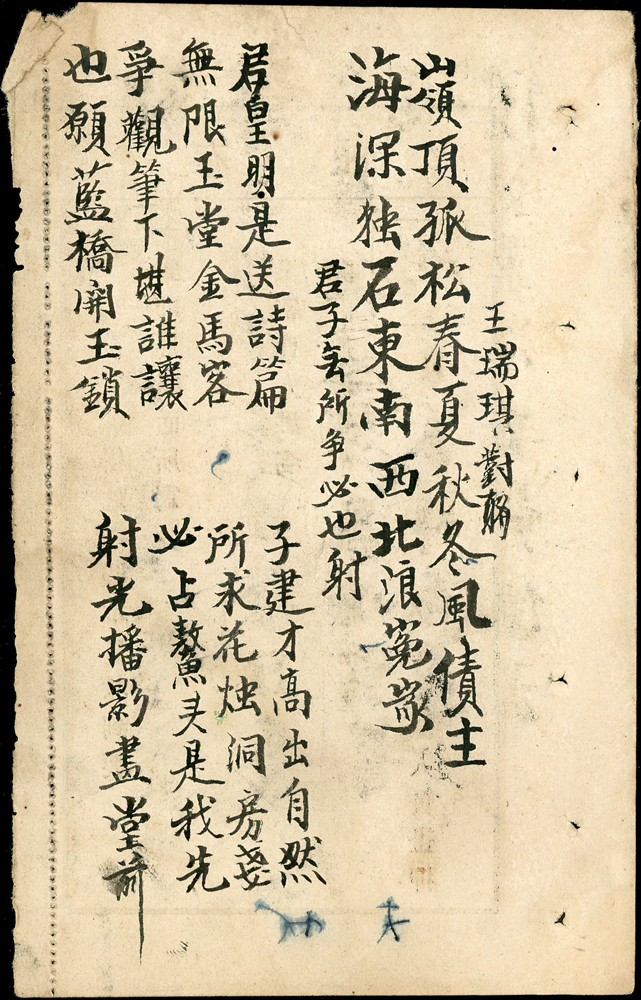 王瑞琪對聨
嶺頂孤松春夏秋冬風債主
海深独石東南西北浪冤家
君子无所争必也射
君皇明是送詩篇
子建才高出自然
無限玉堂金馬客
所求花烛洞房
爭觀筆下堪誰讓
必占鰲头是我先
也願藍橋開玉鎖
射光播影畫堂前